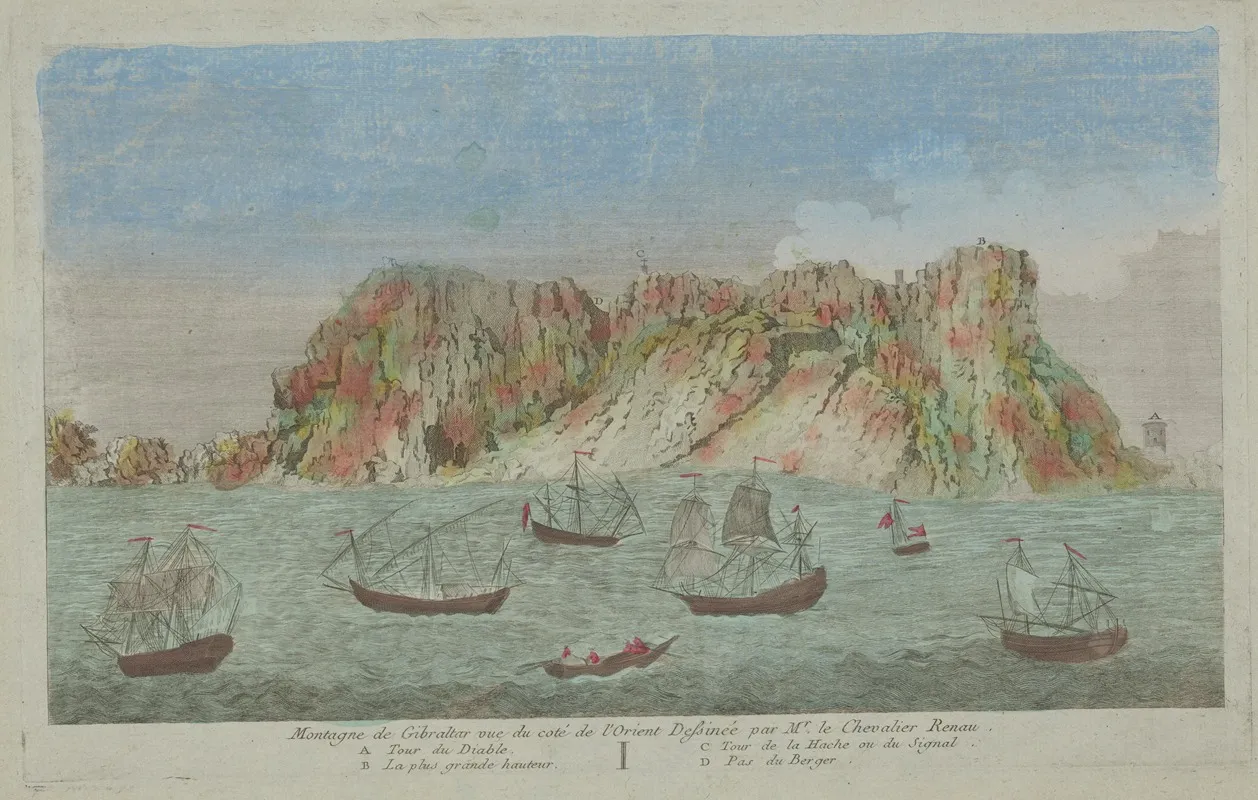 C
B
D
Montagne de Gibraltar vue du coté de l'Orient Deſsinée par Mr. le Chevalier Renau .
A Tour du Diable.
B La plus grande hauteur.
I
C Tour de la Hache ou du Signal .
D Pas du Berger .